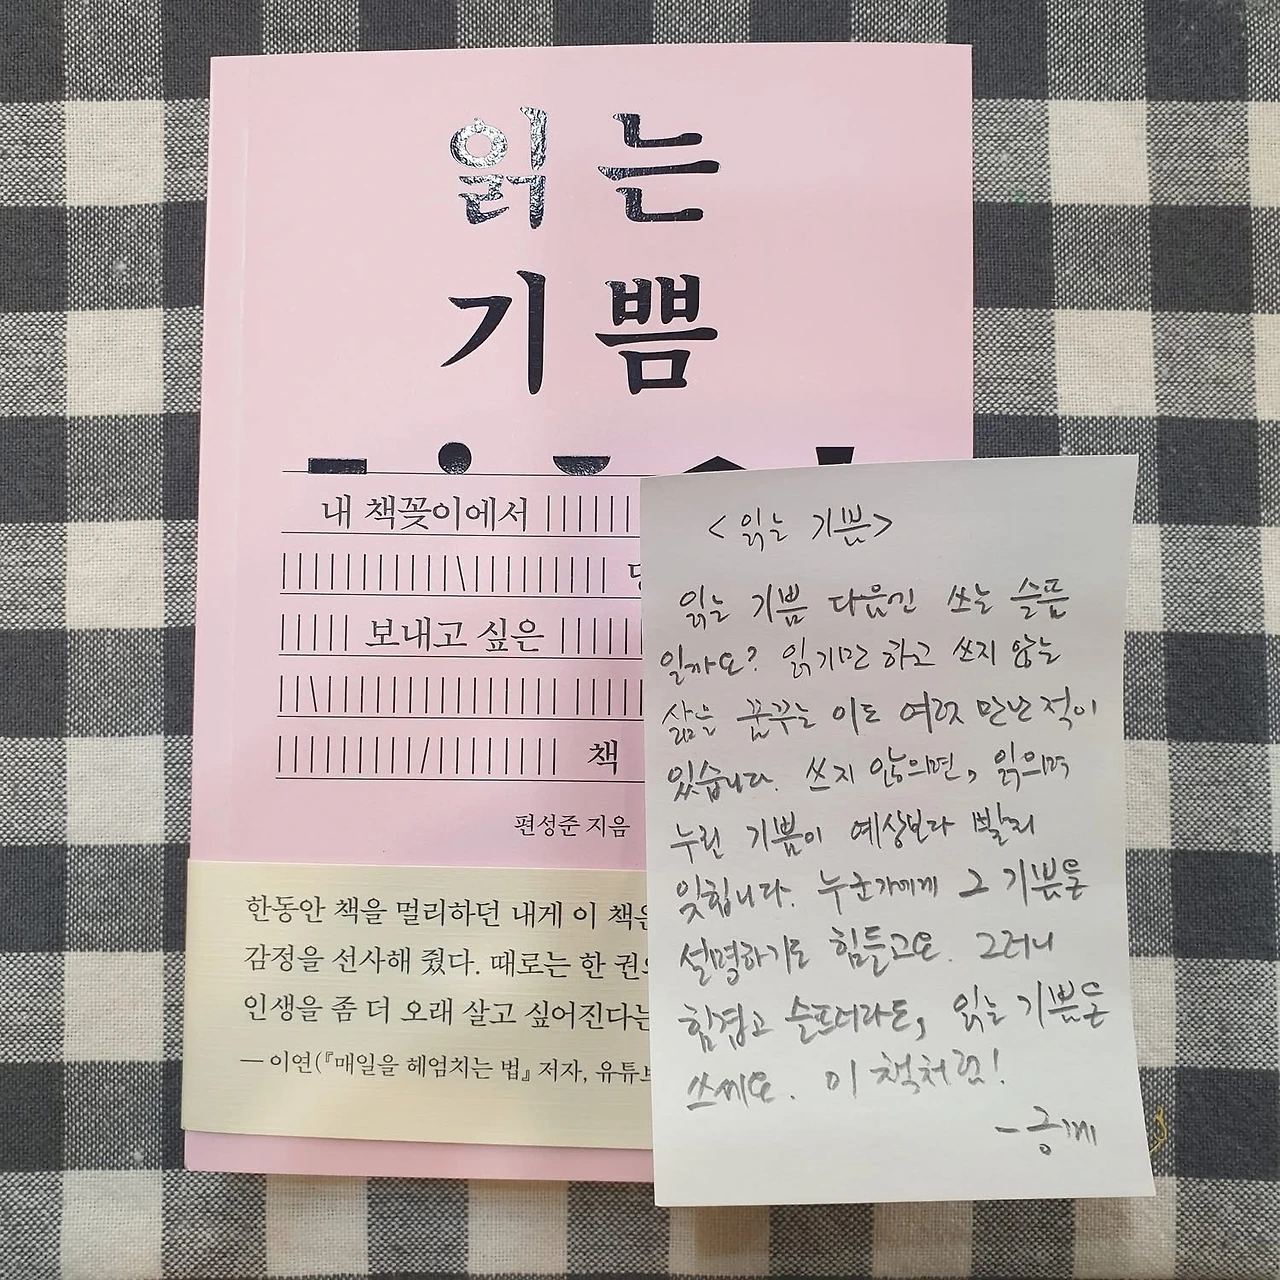 읽는
기쁨
내 책꽂이에서
보내고 싶은
책
편성준 지음
한동안 책을 멀리하던 내게 이 책은
감정을 선사해 줬다. 때로는 한 권으
인생을 좀 더 오래 살고 싶어진다는
— 이연(『매일을 헤엄치는 법』 저자, 유튜브
<읽는 기쁨>
읽는 기쁨 다음엔 쓰는 슬픔
일까요? 읽기만 하고 쓰지 않는
삶을 꿈꾸는 이도 여럿 만난 적이
있습니다. 쓰지 않으면, 읽으며
누린 기쁨이 예상보다 빨리
잊힙니다. 누군가에게 그 기쁨을
설명하기도 힘들고요. 그러니
힘겹고 슬프더라도, 읽는 기쁨을
쓰세요. 이 책처럼!